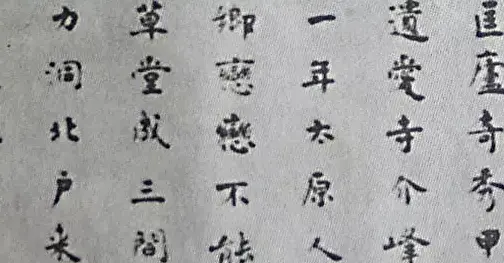 匡廬奇秀甲
遺愛寺介峰
一年太原人
鄉戀戀不能
草堂成三間
力洞北戶來